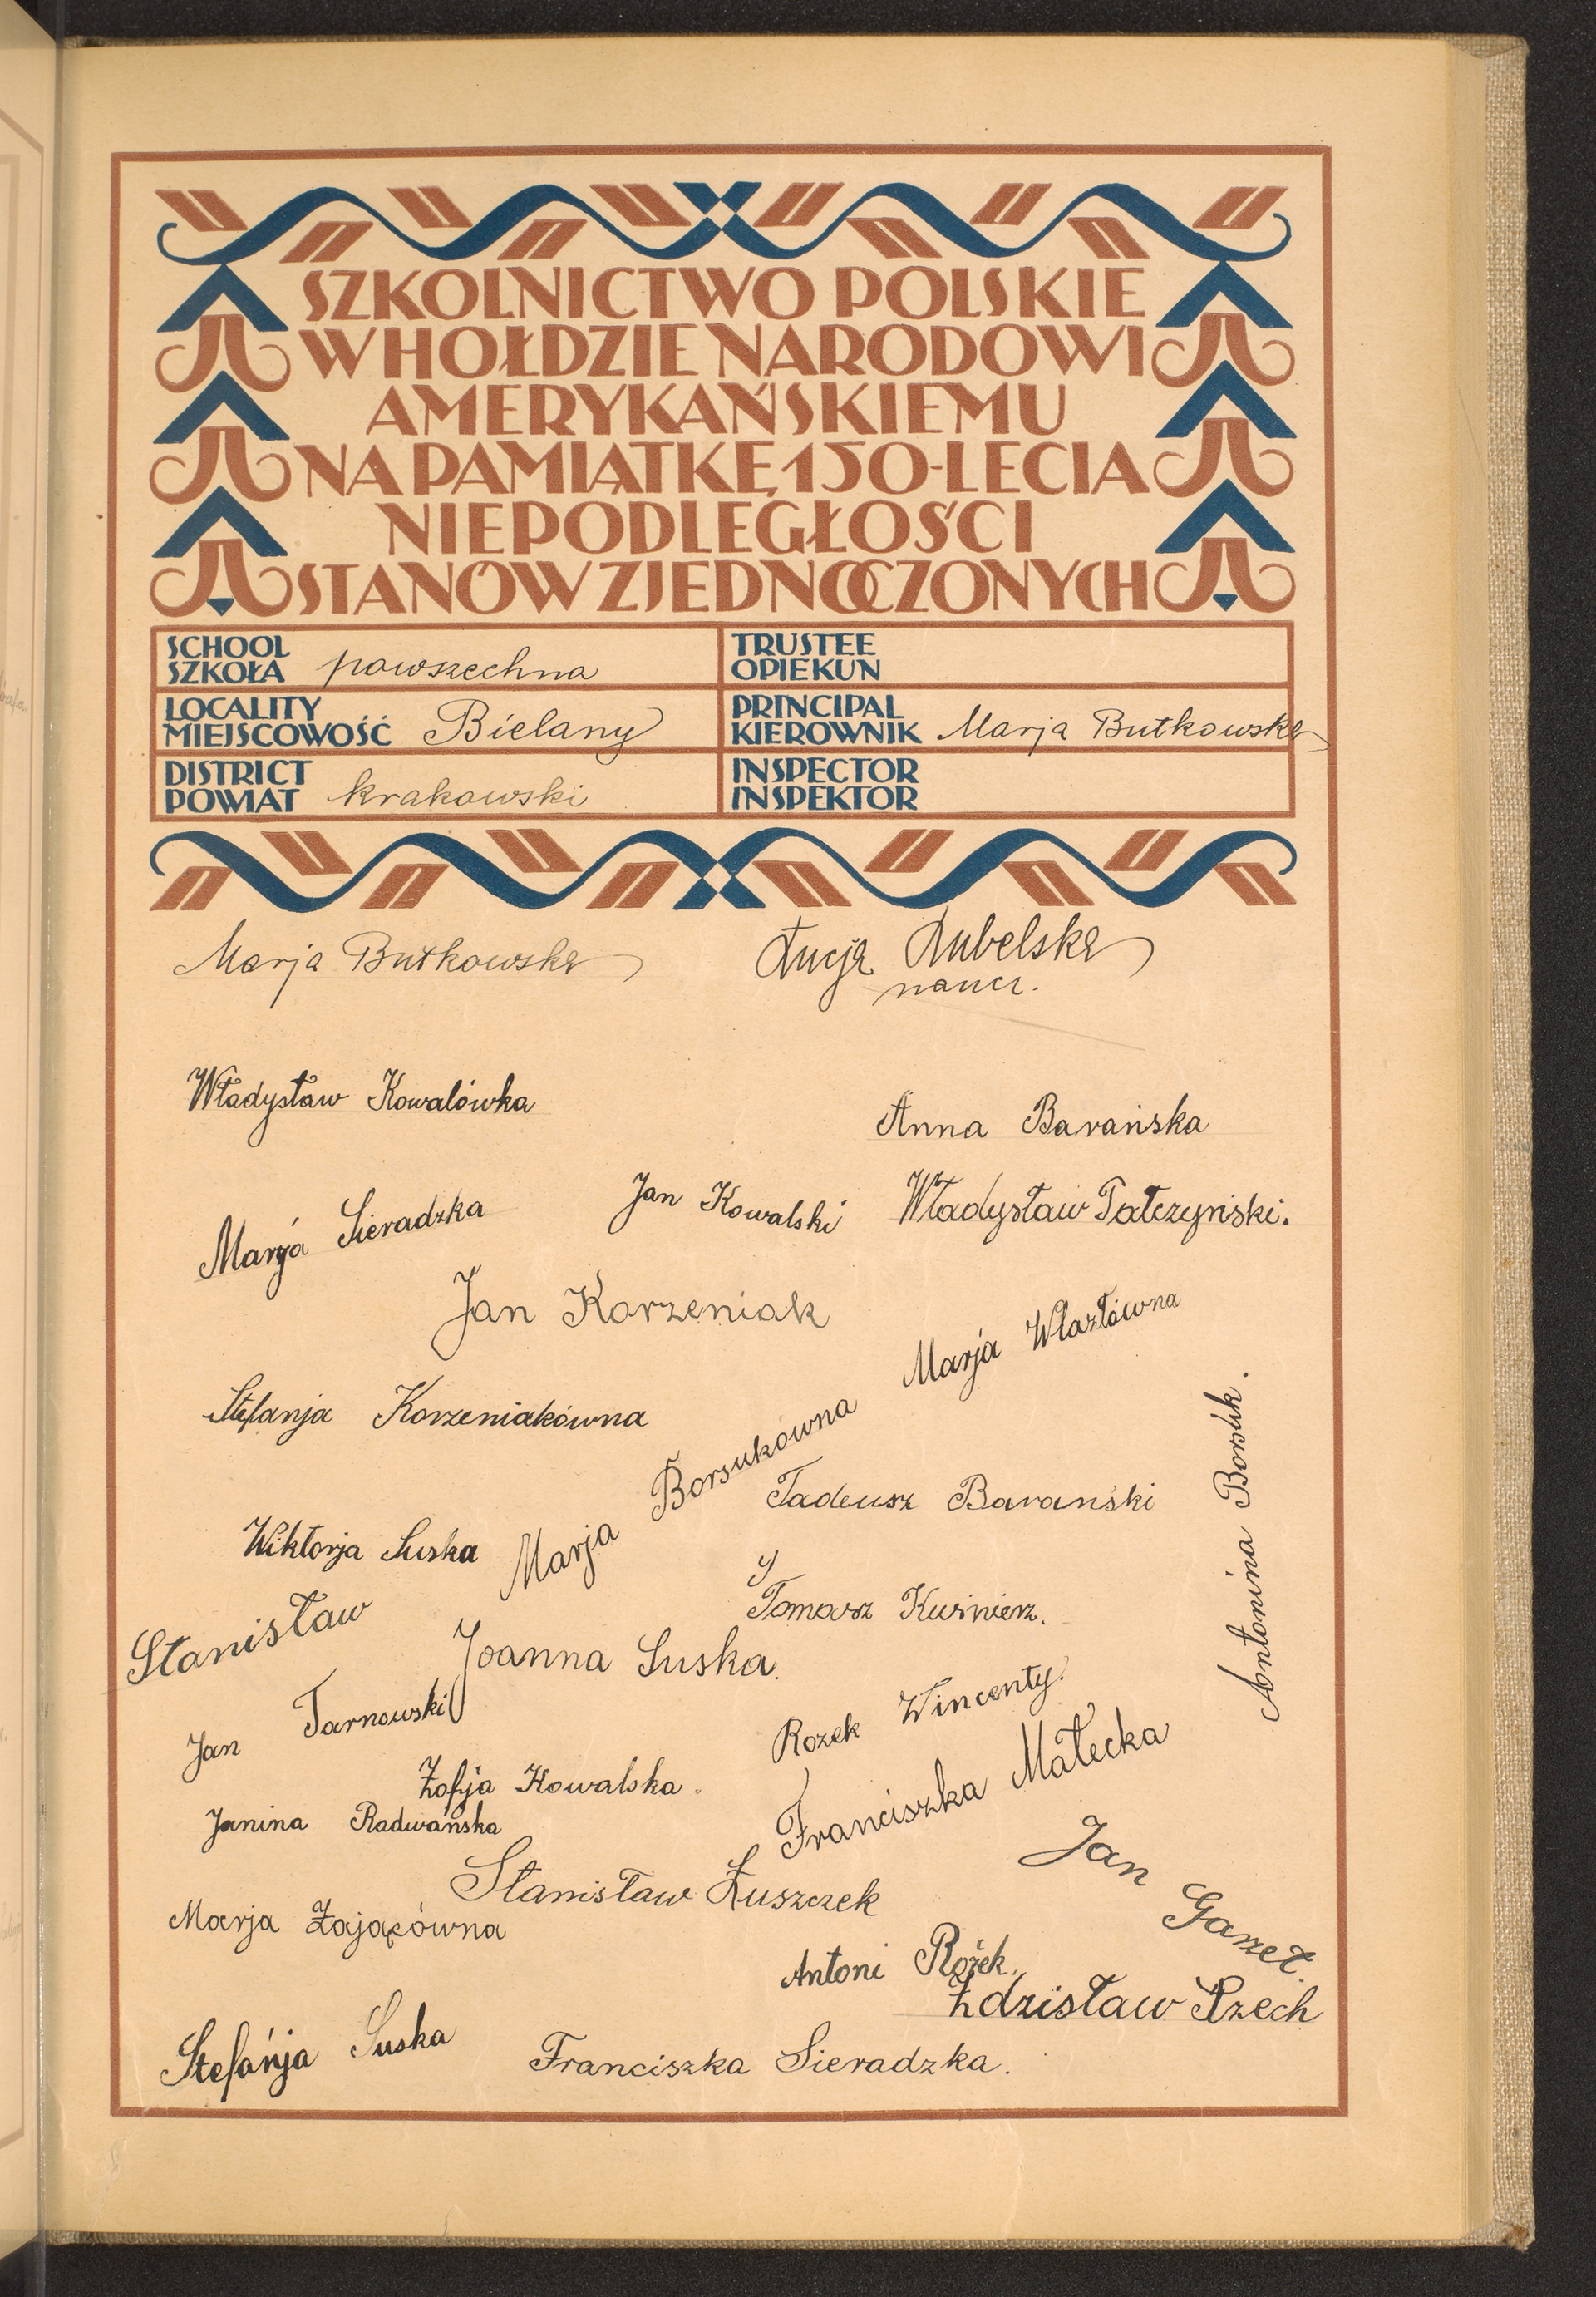 SZKOLNICTWO POLSKIE
W HOŁDZIE NARODOWI
AMERYKAŃSKIEMU
NA PAMIĄTKĘ 150-LECIA
NIEPODLEGŁOŚCI
STANÓW ZJEDNOCZONYCH
SCHOOL
SZKOŁA powszechna
TRUSTEE
OPIEKUN
LOCALITY
MIEJSCOWOŚĆ Bielany
PRINCIPAL
KIEROWNIK Marja Butkowska
DISTRICT
POWIAT krakowski
INSPECTOR
INSPEKTOR
Marja Butkowska
Łucja Lubelska
naucz.
Władysław Kowalówka
Anna Barańska
Marja Sieradzka
Jan Kowalski
Władysław Tatczyński.
Jan Korzeniak
Marja Wlazłówna
Stefanja Korzeniakówna
Marja Borsukówna
Antonina Borsuk.
Tadeusz Barański
Wiktorja Suska
Tomasz Kuśnierz.
Stanisław
Joanna Suska.
Jan Tarnowski
Rozek Wincenty.
Zofja Kowalska.
Franciszka Małecka
Janina Radwańska
Jan Gazet.
Stanisław Łuszczek
Marja Zającówna
Antoni Rożek.
Zdzisław Szech
Stefanja Suska
Franciszka Sieradzka.